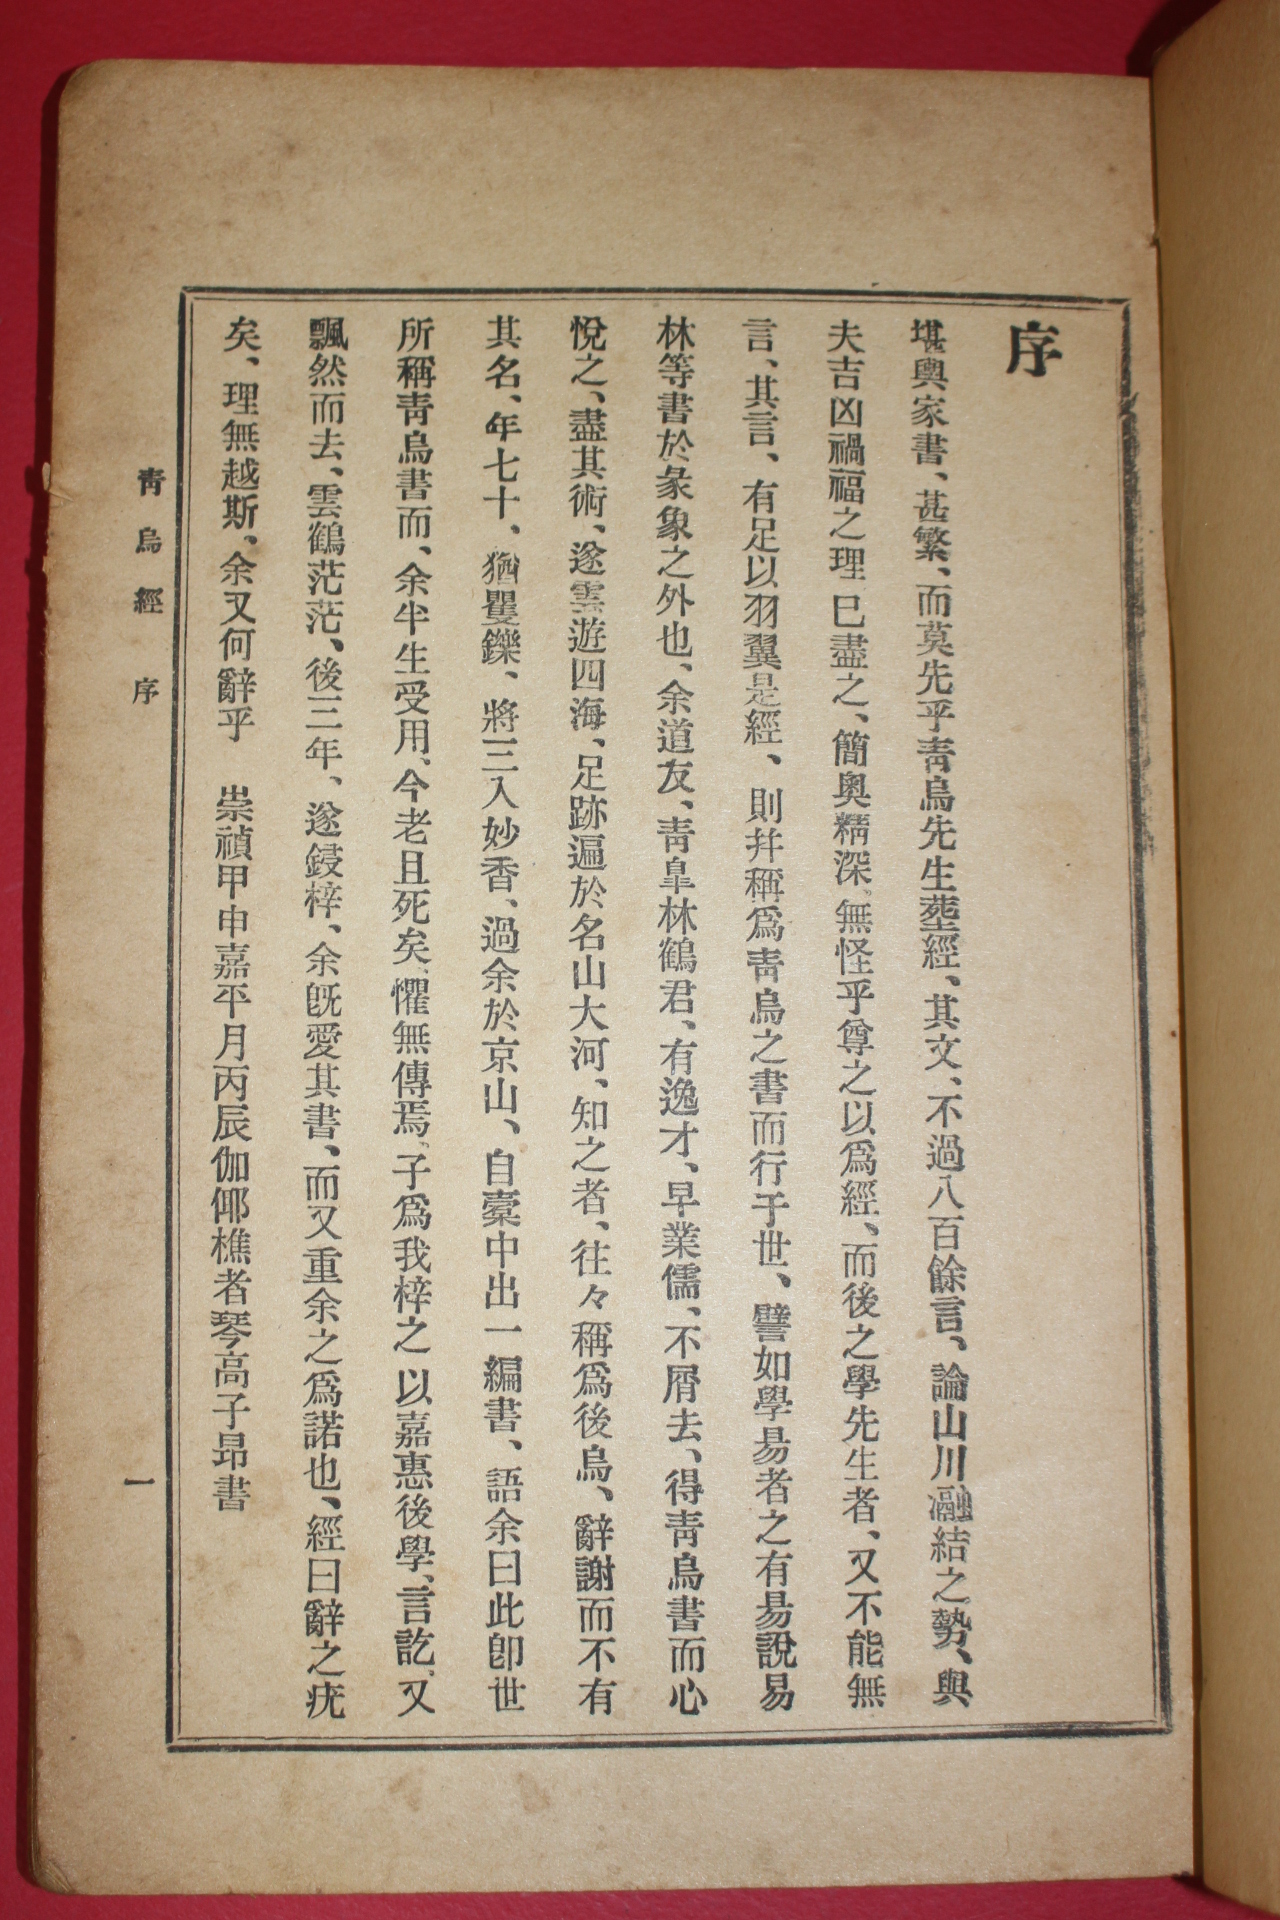 序
堪輿家書、甚繁、而莫先乎靑烏先生葬經、其文、不過八百餘言、論山川瀜結之勢、與
夫吉凶禍福之理已盡之、簡奧精深、無怪乎尊之以爲經、而後之學先生者、又不能無
言、其言、有足以羽翼是經、則幷稱爲靑烏之書而行于世、譬如學易者之有易說易
林等書於彖象之外也、余道友、靑臯林鶴君、有逸才、早業儒、不屑去、得靑烏書而心
悅之、盡其術、遂雲遊四海、足跡遍於名山大河、知之者、往々稱爲後烏、辭謝而不有
其名、年七十、猶矍鑠、將三入妙香、過余於京山、自槖中出一編書、語余曰此卽世
所稱靑烏書而、余半生受用、今老且死矣、懼無傳焉、子爲我梓之以嘉惠後學、言訖、又
飄然而去、雲鶴茫茫、後三年、遂鋟梓、余旣愛其書、而又重余之爲諾也、經曰辭之疣
矣、理無越斯、余又何辭乎　崇禎甲申嘉平月丙辰伽倻樵者琴高子昂書
靑烏經　序　一